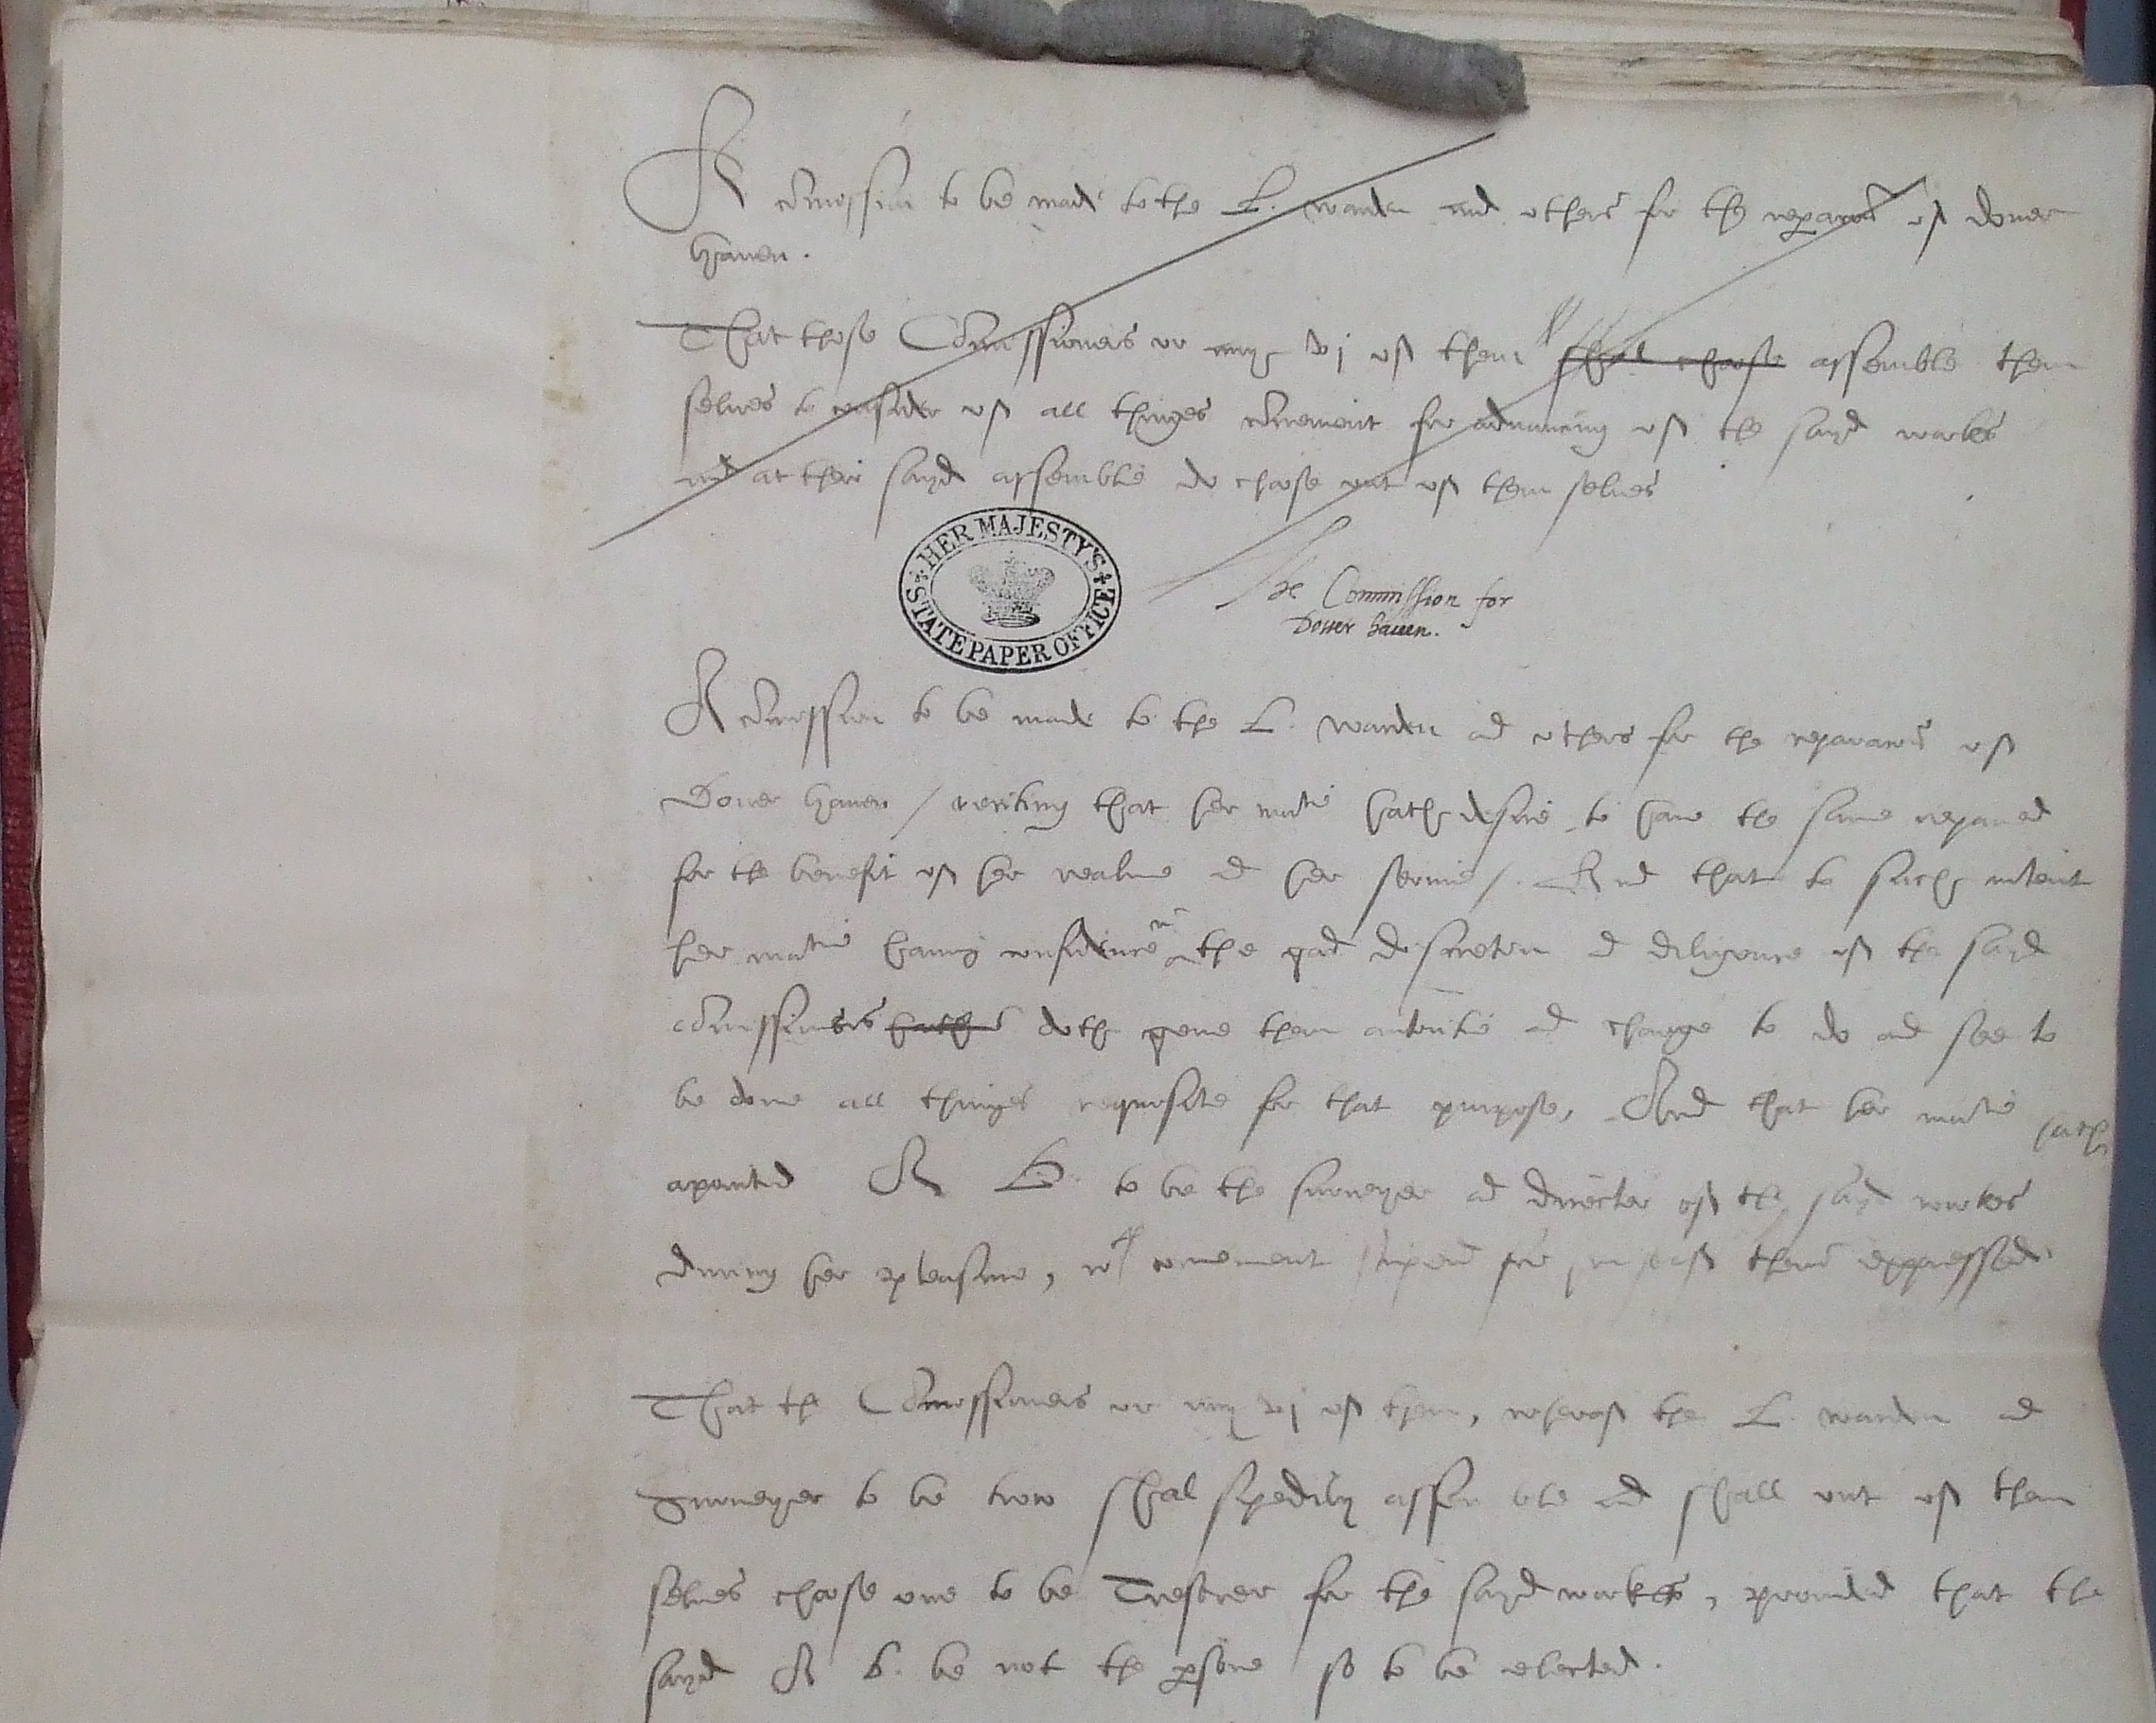 A comission to be made to the L. warden and others for the reparacion of dover
haven.
That those Comissioners or any vj of them shal choose assemble them
selves to consider of all thinges convenient for advancing of the sayd workes
and at their sayd assemble do choose out of them selves
HER MAJESTY'S STATE PAPER OFFICE
The Commission for
Dover haven.
A comission to be made to the L. warden ad others for the reparacion of
Dover haven / reciting that her matie hath desire to have the same repared
for the benefit of her realme ad her servic /. And that to such intent
her matie having confidence in the good discretion ad diligence of the sayd
comissioners hathe doth geve them autorite ad charge to do ad see to
be done all thinges requisite for that purpose, And that her matie hath
apointed A B. to be the surveyer ad directer of the sayd workes
during her pleasure, wt convenient stipend for expressed
That the Comissioners or any vj of them, wherof the L. warden ad
Surveyer to be two shal spedily assemble ad shall out of them
selves choose one to be Tresorer for the sayd workes, provided that the
sayd A B. be not the persone so to be elected.